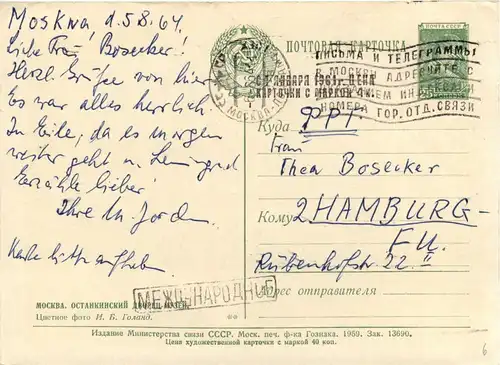 Moskwa, d. 5.8.64.
Liebe Frau Bosecker!
Herzl. Grüße von hier
Es war alles herrlich.
In Eile, da es morgen
weiter geht n. Leningrad
Erzähle lieber!
Ihre M. Jordan.
Karte bitte aufheben
МЕЖДУНАРОДНОЕ
МОСКВА. ОСТАНКИНСКИЙ ДВОРЕЦ-МУЗЕЙ.
Цветное фото И. Б. Голанд.
ПОЧТА СССР
ПОЧТОВАЯ КАРТОЧКА
ПИСЬМА И ТЕЛЕГРАММЫ
В МОСКВУ АДРЕСУЙТЕ С
НОМЕРА ГОР. ОТД. СВЯЗИ
С 1 ЯНВАРЯ 1961 г. ЦЕНА
КАРТОЧКИ С МАРКОЙ 4 к.
МОСКВА
Куда ФРГ
Frau
Thea Bosecker
Кому 2 HAMBURG-
FU.
Rübenhofstr. 22. II
Адрес отправителя
Издание Министерства связи СССР. Моск. печ. ф-ка Гознака. 1959. Зак. 13690.
Цена художественной карточки с маркой 40 коп.
6